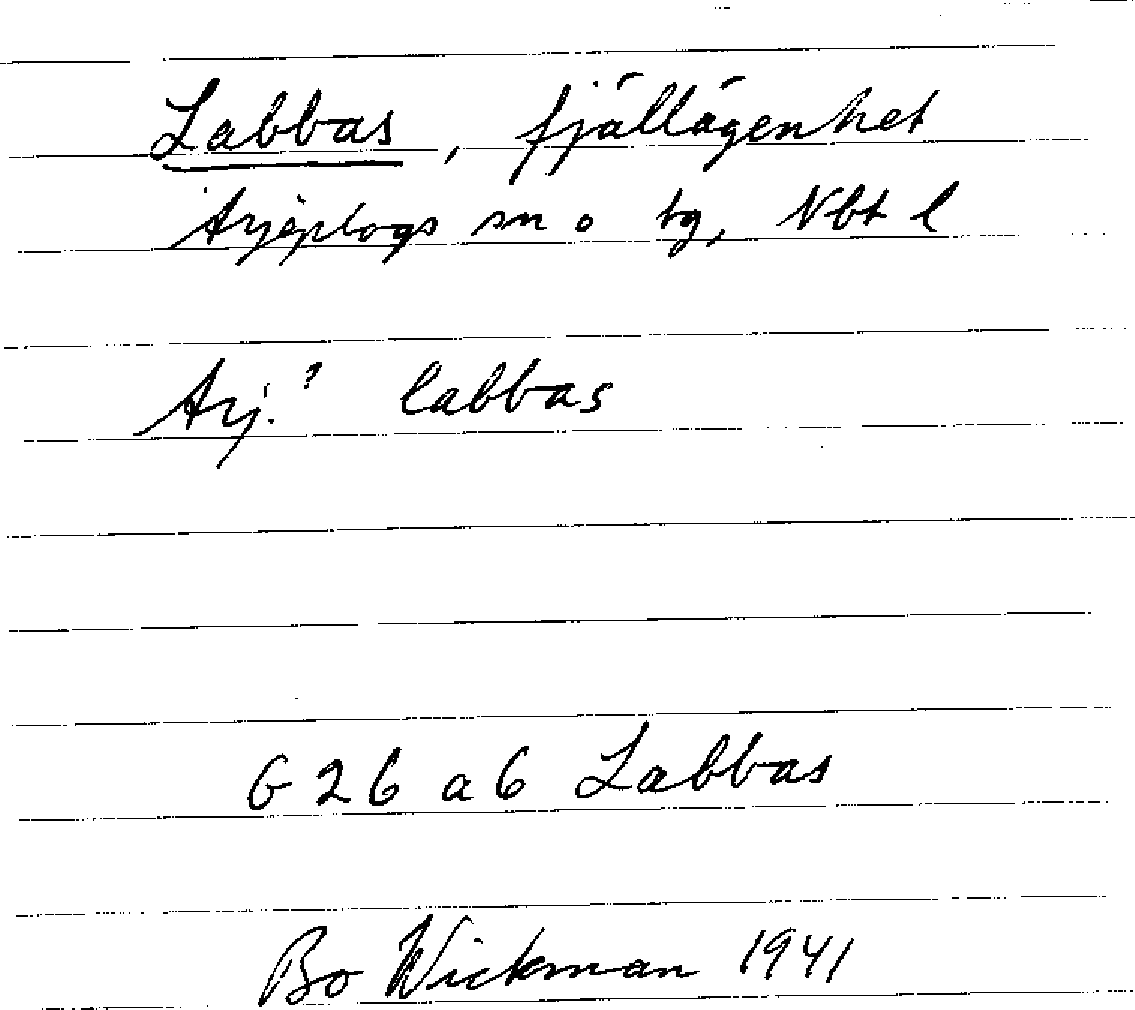 Labbas, fjällägenhet
Arjeplogs sn o tg, Nbt l
Arj.? labbas
G 26 a 6 Labbas
Bo Wickman 1941